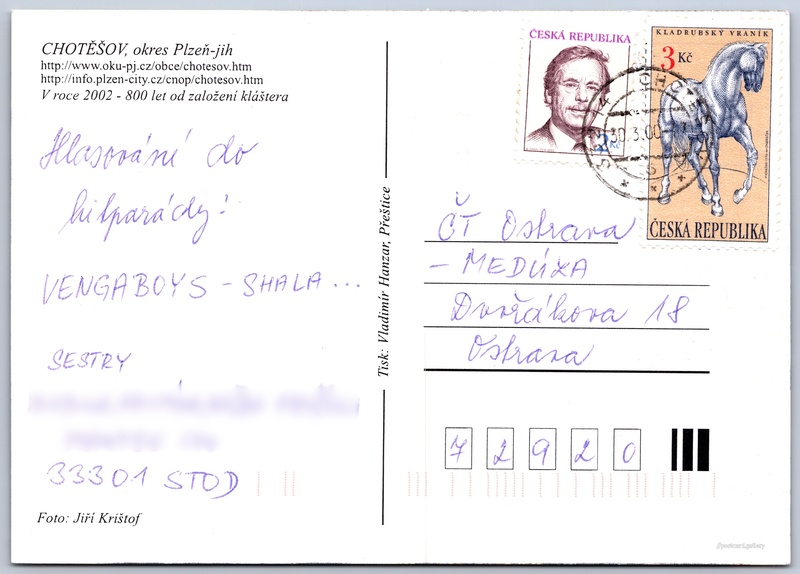 CHOTĚŠOV, okres Plzeň-jih
http://www.oku-pj.cz/obce/chotesov.htm
http://info.plzen-city.cz/cnop/chotesov.htm
V roce 2002 - 800 let od založení kláštera
Hlasování do
hitparády:
VENGABOYS - SHALA ...
SESTRY
33301 STOD
Foto: Jiří Krištof
Tisk: Vladimír Hanzar, Přeštice
ČESKÁ REPUBLIKA
KLADRUBSKÝ VRANÍK
3 Kč
ČESKÁ REPUBLIKA
30.3.00
ČT Ostrava
- MEDÚZA
Dvořákova 18
Ostrava
72920